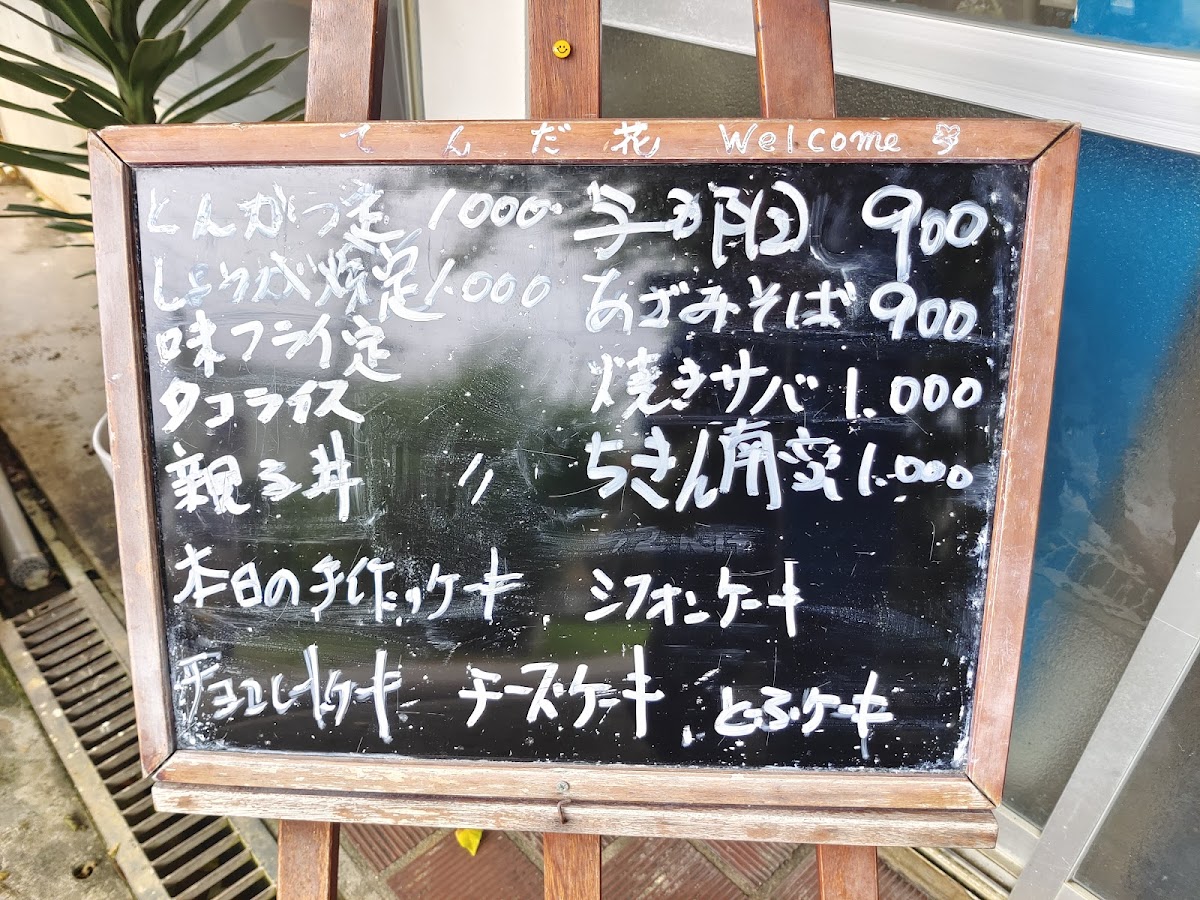 てんだ花 Welcome
とんかつ定 1000.
しょうが焼定 1.000
味フライ定
タコライス
親子丼 〃
900
あざみそば 900
焼きサバ 1.000
ちきん南蛮 1.000
本日の手作りケーキ シフォンケーキ
チョコレートケーキ チーズケーキ とうふケーキ